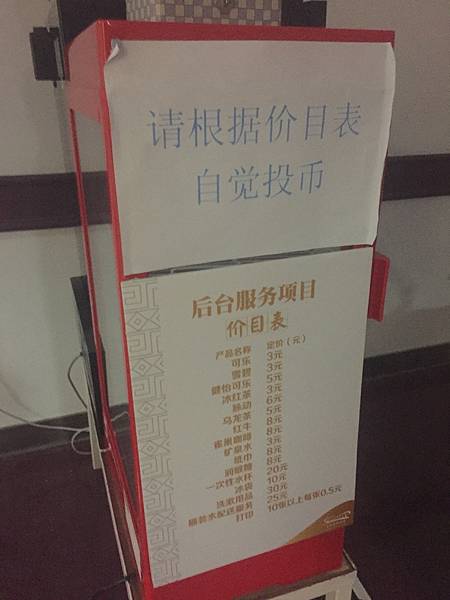 请根据价目表
自觉投币
后台服务项目
价目表
产品名称 定价（元）
可乐 3元
雪碧 3元
健怡可乐 5元
冰红茶 3元
脉动 6元
乌龙茶 5元
红牛 8元
雀巢咖啡 8元
矿泉水 3元
纸巾 8元
润喉糖 8元
一次性水杯 20元
冰袋 10元
洗漱用品 30元
桶装水配送服务 25元
打印 10张以上每张0.5元